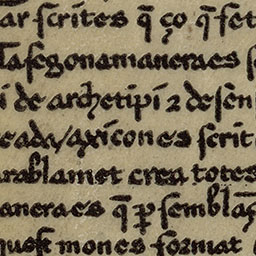 ar scrites q̄ ço q̄ fet
La segona maneraes s
i de archetipi ⁊ de sen
eada/axi con es scrit
arablamet crea totes
aneraes q̄ ꝑ semblāç
quose mones format